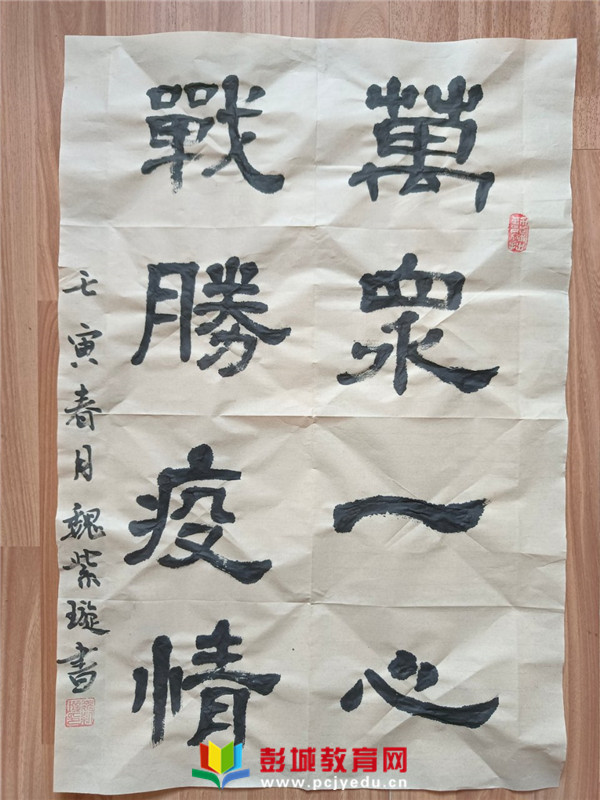 萬眾一心
戰勝疫情
壬寅春月魏紫璇書
彭城教育网
www.pcjyedu.cn